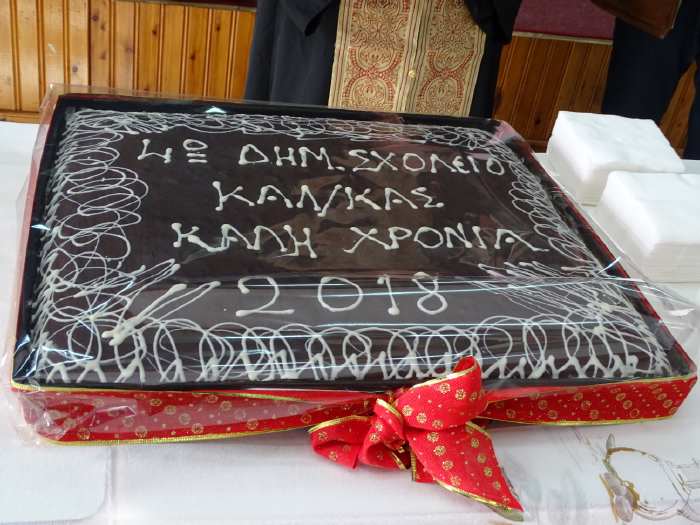 4ο ΔΗΜ. ΣΧΟΛΕΙΟ
ΚΑΛ/ΚΑΣ
ΚΑΛΗ ΧΡΟΝΙΑ
2018